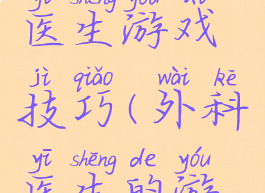 yī shēng yóu xì
医生游戏
jì qiǎo wài kē
技巧(外科
yī shēng de yóu
医生的游